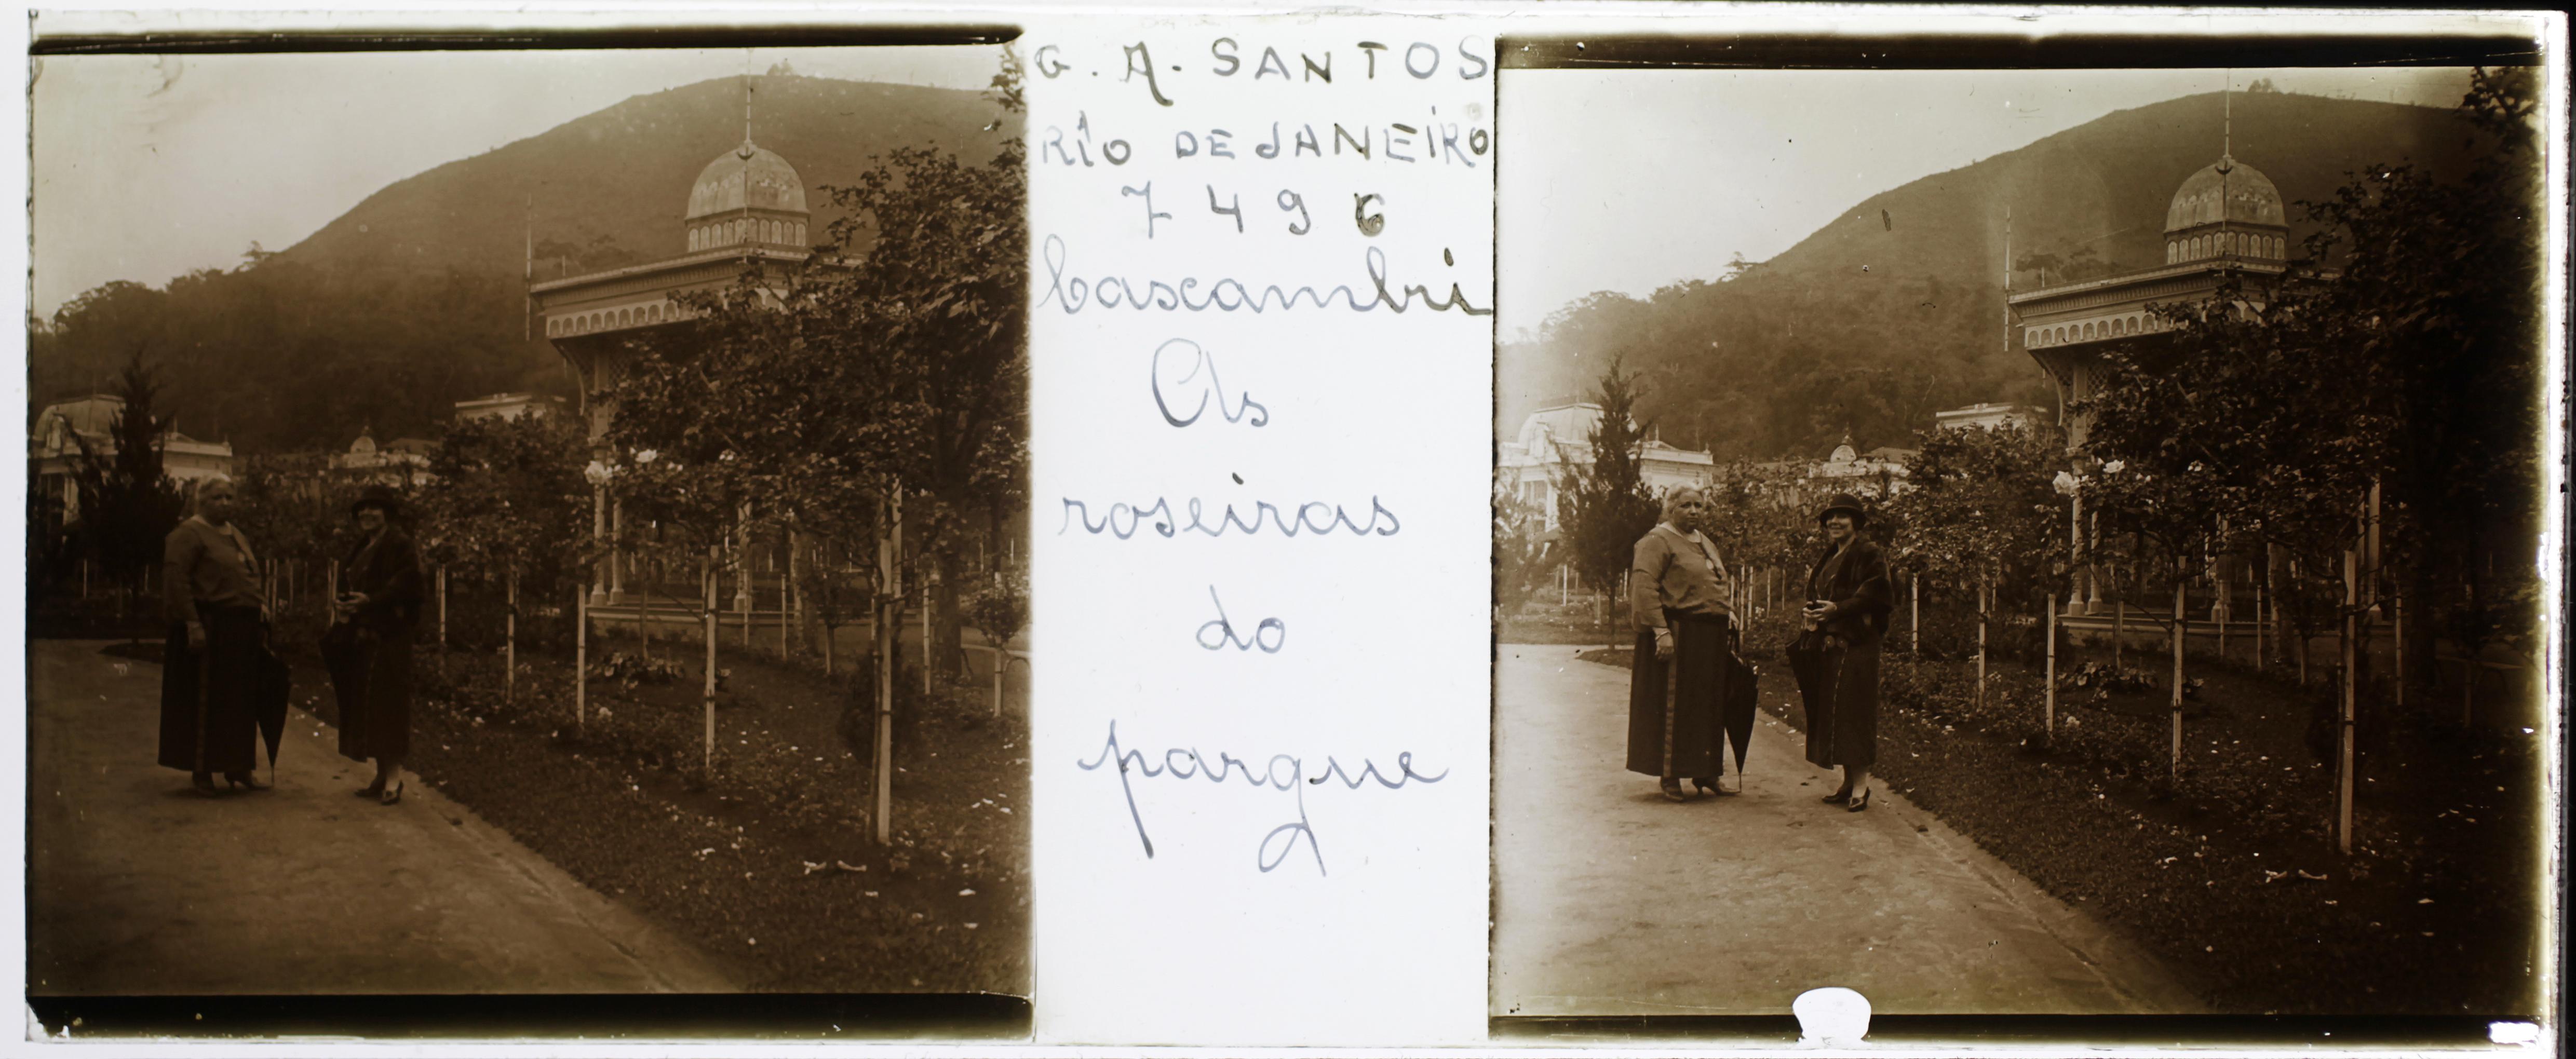 G. A. SANTOS
RIO DE JANEIRO
7496
Caxambri
As
roseiras
do
parque